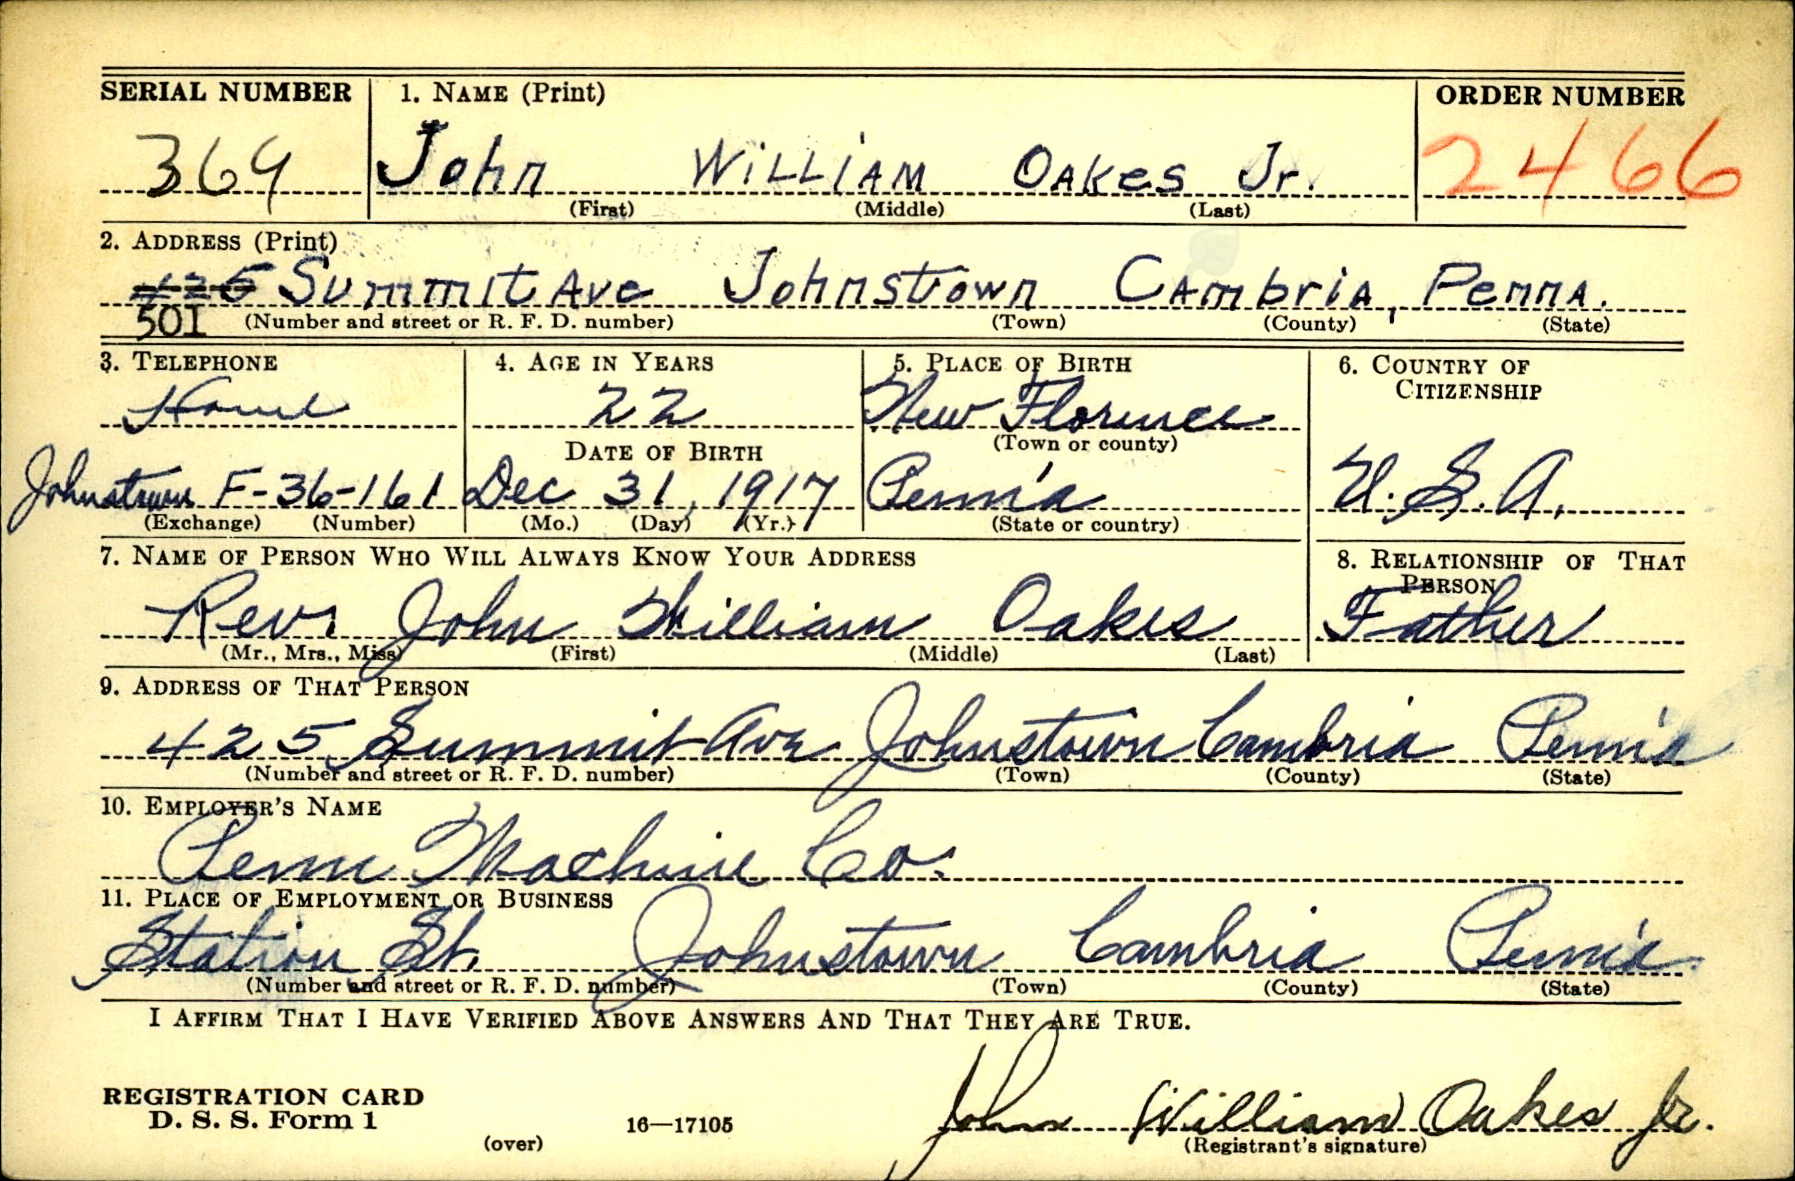 SERIAL NUMBER 1. NAME (Print) ORDER NUMBER
369 John WiLLiAM OAKes Jr. 2466
(First) (Middle) (Last)
2. ADDRESS (Print)
425 Summit Ave Johnstown CAmbriA, PennA.
501 (Number and street or R. F. D. number) (Town) (County) (State)
3. TELEPHONE 4. AGE IN YEARS 5. PLACE OF BIRTH 6. COUNTRY OF CITIZENSHIP
Home 22 New Florence
(Town or county)
DATE OF BIRTH
Johnstown F-36-161 Dec 31, 1917 Penn'a U.S.A.
(Exchange) (Number) (Mo.) (Day) (Yr.) (State or country)
7. NAME OF PERSON WHO WILL ALWAYS KNOW YOUR ADDRESS 8. RELATIONSHIP OF THAT PERSON
Rev. John William Oakes Father
(Mr., Mrs., Miss) (First) (Middle) (Last)
9. ADDRESS OF THAT PERSON
425 Summit Ave Johnstown Cambria Penn'a
(Number and street or R. F. D. number) (Town) (County) (State)
10. EMPLOYER'S NAME
Penn Machine Co.
11. PLACE OF EMPLOYMENT OR BUSINESS
Station St. Johnstown Cambria Penn'a.
(Number and street or R. F. D. number) (Town) (County) (State)
I AFFIRM THAT I HAVE VERIFIED ABOVE ANSWERS AND THAT THEY ARE TRUE.
REGISTRATION CARD
D. S. S. Form 1 16—17105 John William Oakes Jr.
(over) (Registrant's signature)